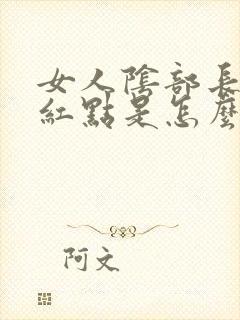 女人陰部長
紅點是怎麼
阿文